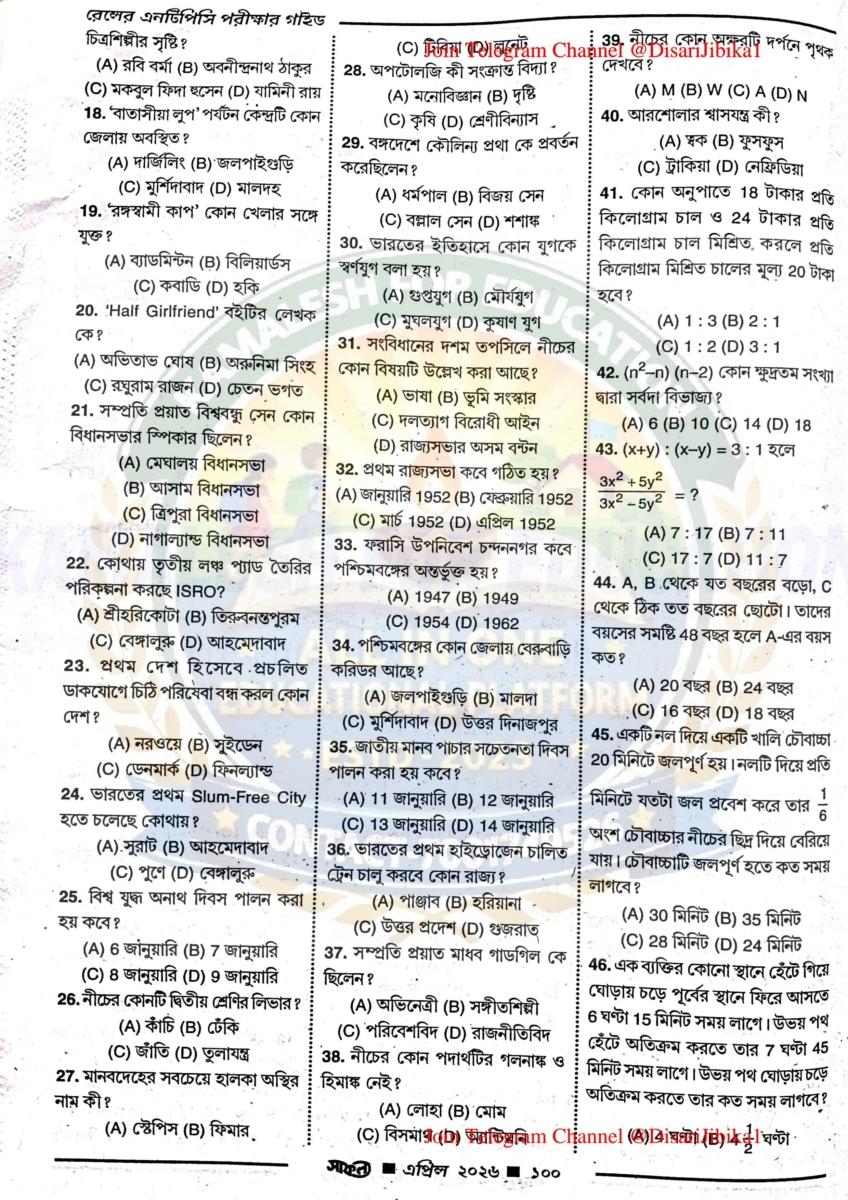 রেলের এনটিপিসি পরীক্ষার গাইড
চিত্রশিল্পীর সৃষ্টি?
(A) রবি বর্মা (B) অবনীন্দ্রনাথ ঠাকুর
(C) মকবুল ফিদা হুসেন (D) যামিনী রায়
18. ‘বাতাসীয়া লুপ’ পর্যটন কেন্দ্রটি কোন
জেলায় অবস্থিত?
(A) দার্জিলিং (B) জলপাইগুড়ি
(C) মুর্শিদাবাদ (D) মালদহ
19. ‘রঙ্গস্বামী কাপ’ কোন খেলার সঙ্গে
যুক্ত?
(A) ব্যাডমিন্টন (B) বিলিয়ার্ডস
(C) কবাডি (D) হকি
20. ‘Half Girlfriend’ বইটির লেখক
কে?
(A) অভিতাভ ঘোষ (B) অরুনিমা সিংহ
(C) রঘুরাম রাজন (D) চেতন ভগত
21. সম্প্রতি প্রয়াত বিশ্ববন্ধু সেন কোন
বিধানসভার স্পিকার ছিলেন?
(A) মেঘালয় বিধানসভা
(B) আসাম বিধানসভা
(C) ত্রিপুরা বিধানসভা
(D) নাগাল্যান্ড বিধানসভা
22. কোথায় তৃতীয় লঞ্চ প্যাড তৈরির
পরিকল্পনা করছে ISRO?
(A) শ্রীহরিকোটা (B) তিরুবনন্তপুরম
(C) বেঙ্গালুরু (D) আহমেদাবাদ
23. প্রথম দেশ হিসেবে প্রচলিত
ডাকযোগে চিঠি পরিষেবা বন্ধ করল কোন
দেশ?
(A) নরওয়ে (B) সুইডেন
(C) ডেনমার্ক (D) ফিনল্যান্ড
24. ভারতের প্রথম Slum-Free City
হতে চলেছে কোথায়?
(A) সুরাট (B) আহমেদাবাদ
(C) পুণে (D) বেঙ্গালুরু
25. বিশ্ব যুদ্ধ অনাথ দিবস পালন করা
হয় কবে?
(A) 6 জানুয়ারি (B) 7 জানুয়ারি
(C) 8 জানুয়ারি (D) 9 জানুয়ারি
26. নীচের কোনটি দ্বিতীয় শ্রেণির লিভার?
(A) কাঁচি (B) ঢেঁকি
(C) জাঁতি (D) তুলাযন্ত্র
27. মানবদেহের সবচেয়ে হালকা অস্থির
নাম কী?
(A) স্টেপিস (B) ফিমার
(C) টিবিয়া (D) লুনেট
28. অপটোলজি কী সংক্রান্ত বিদ্যা?
(A) মনোবিজ্ঞান (B) দৃষ্টি
(C) কৃষি (D) শ্রেণীবিন্যাস
29. বঙ্গদেশে কৌলিন্য প্রথা কে প্রবর্তন
করেছিলেন?
(A) ধর্মপাল (B) বিজয় সেন
(C) বল্লাল সেন (D) শশাঙ্ক
30. ভারতের ইতিহাসে কোন যুগকে
স্বর্ণযুগ বলা হয়?
(A) গুপ্তযুগ (B) মৌর্যযুগ
(C) মুঘলযুগ (D) কুষাণ যুগ
31. সংবিধানের দশম তপসিলে নীচের
কোন বিষয়টি উল্লেখ করা আছে?
(A) ভাষা (B) ভূমি সংস্কার
(C) দলত্যাগ বিরোধী আইন
(D) রাজ্যসভার অসম বন্টন
32. প্রথম রাজ্যসভা কবে গঠিত হয়?
(A) জানুয়ারি 1952 (B) ফেব্রুয়ারি 1952
(C) মার্চ 1952 (D) এপ্রিল 1952
33. ফরাসি উপনিবেশ চন্দননগর কবে
পশ্চিমবঙ্গের অন্তর্ভুক্ত হয়?
(A) 1947 (B) 1949
(C) 1954 (D) 1962
34. পশ্চিমবঙ্গের কোন জেলায় বেরুবাড়ি
করিডর আছে?
(A) জলপাইগুড়ি (B) মালদা
(C) মুর্শিদাবাদ (D) উত্তর দিনাজপুর
35. জাতীয় মানব পাচার সচেতনতা দিবস
পালন করা হয় কবে?
(A) 11 জানুয়ারি (B) 12 জানুয়ারি
(C) 13 জানুয়ারি (D) 14 জানুয়ারি
36. ভারতের প্রথম হাইড্রোজেন চালিত
ট্রেন চালু করবে কোন রাজ্য?
(A) পাঞ্জাব (B) হরিয়ানা
(C) উত্তর প্রদেশ (D) গুজরাত
37. সম্প্রতি প্রয়াত মাধব গাডগিল কে
ছিলেন?
(A) অভিনেত্রী (B) সঙ্গীতশিল্পী
(C) পরিবেশবিদ (D) রাজনীতিবিদ
38. নীচের কোন পদার্থটির গলনাঙ্ক ও
হিমাঙ্ক নেই?
(A) লোহা (B) মোম
(C) বিসমাথ (D) অ্যান্টিমনি
39. নীচের কোন অক্ষরটি দর্পনে পৃথক
দেখবে?
(A) M (B) W (C) A (D) N
40. আরশোলার শ্বাসযন্ত্র কী?
(A) ত্বক (B) ফুসফুস
(C) ট্রাকিয়া (D) নেফ্রিডিয়া
41. কোন অনুপাতে 18 টাকার প্রতি
কিলোগ্রাম চাল ও 24 টাকার প্রতি
কিলোগ্রাম চাল মিশ্রিত করলে প্রতি
কিলোগ্রাম মিশ্রিত চালের মূল্য 20 টাকা
হবে?
(A) 1 : 3 (B) 2 : 1
(C) 1 : 2 (D) 3 : 1
42. (n²–n) (n–2) কোন ক্ষুদ্রতম সংখ্যা
দ্বারা সর্বদা বিভাজ্য?
(A) 6 (B) 10 (C) 14 (D) 18
43. (x+y) : (x–y) = 3 : 1 হলে
3x² + 5y²
3x² – 5y² = ?
(A) 7 : 17 (B) 7 : 11
(C) 17 : 7 (D) 11 : 7
44. A, B থেকে যত বছরের বড়ো, C
থেকে ঠিক তত বছরের ছোটো। তাদের
বয়সের সমষ্টি 48 বছর হলে A-এর বয়স
কত?
(A) 20 বছর (B) 24 বছর
(C) 16 বছর (D) 18 বছর
45. একটি নল দিয়ে একটি খালি চৌবাচ্চা
20 মিনিটে জলপূর্ণ হয়। নলটি দিয়ে প্রতি
মিনিটে যতটা জল প্রবেশ করে তার 1/6
অংশ চৌবাচ্চার নীচের ছিদ্র দিয়ে বেরিয়ে
যায়। চৌবাচ্চাটি জলপূর্ণ হতে কত সময়
লাগবে?
(A) 30 মিনিট (B) 35 মিনিট
(C) 28 মিনিট (D) 24 মিনিট
46. এক ব্যক্তির কোনো স্থানে হেঁটে গিয়ে
ঘোড়ায় চড়ে পূর্বের স্থানে ফিরে আসতে
6 ঘণ্টা 15 মিনিট সময় লাগে। উভয় পথ
হেঁটে অতিক্রম করতে তার 7 ঘণ্টা 45
মিনিট সময় লাগে। উভয় পথ ঘোড়ায় চড়ে
অতিক্রম করতে তার কত সময় লাগবে?
(A) 4 ঘণ্টা (B) 4 1/2 ঘণ্টা
Join Telegram Channel @DisariJibika1
Join Telegram Channel @DisariJibika1
KAMALESH FOR EDUCATION
ALL IN ONE
EDUCATIONAL PLATFORM
ESTD - 2025
সাফল্য ■ এপ্রিল ২০২৬ ■ ১০০